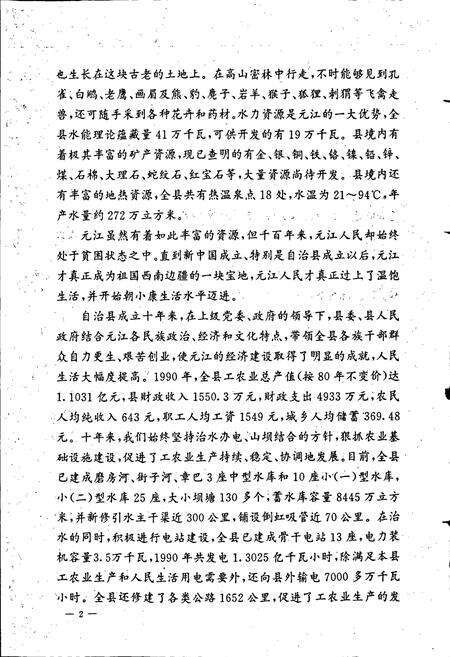 也生长在这块古老的土地上。在高山密林中行走，不时能够见到孔
雀、白鹇、老鹰、画眉及熊、豹、麂子、岩羊、猴子、狐狸、刺猬等飞禽走
兽，还可随手采到各种花卉和药材。水力资源是元江的一大优势，全
县水能理论蕴藏量41万千瓦，可供开发的有19万千瓦。县境内有
着极其丰富的矿产资源，现已查明的有金、银、铜、铁、铬、镍、铅、锌、
煤、石棉、大理石、蛇纹石、红宝石等，大量资源尚待开发。县境内还
有丰富的地热资源，全县共有热温泉点18处，水温为21～94℃，年
产水量约272万立方米。
元江虽然有着如此丰富的资源，但千百年来，元江人民却始终
处于贫困状态之中。直到新中国成立、特别是自治县成立以后，元江
才真正成为祖国西南边疆的一块宝地，元江人民才真正过上了温饱
生活，并开始朝小康生活水平迈进。
自治县成立十年来，在上级党委、政府的领导下，县委、县人民
政府结合元江各民族政治、经济和文化特点，带领全县各族干部群
众自力更生、艰苦创业，使元江的经济建设取得了明显的成就，人民
生活大幅度提高。1990年，全县工农业总产值（按80年不变价）达
1.1031亿元，县财政收入1550.3万元，财政支出4933万元，农民
人均纯收入643元，职工人均工资1549元，城乡人均储蓄369.48
元。十年来，我们始终坚持治水办电、山坝结合的方针，狠抓农业基
础设施建设，促进了工农业生产持续、稳定、协调地发展。目前，全县
已建成磨房河、街子河、章巴3座中型水库和10座小（一）型水库，
小（二）型水库25座，大小坝塘130多个，蓄水库容量8445万立方
米，并新修引水主干渠近300公里，铺设倒虹吸管近70公里。在治
水的同时，积极进行电站建设，全县已建成骨干电站13座，电力装
机容量3.5万千瓦，1990年共发电1.3025亿千瓦小时，除满足本县
工农业生产和人民生活用电需要外，还向县外输电7000多万千瓦
小时。全县还修建了各类公路1652公里，促进了工农业生产的发
— 2 —